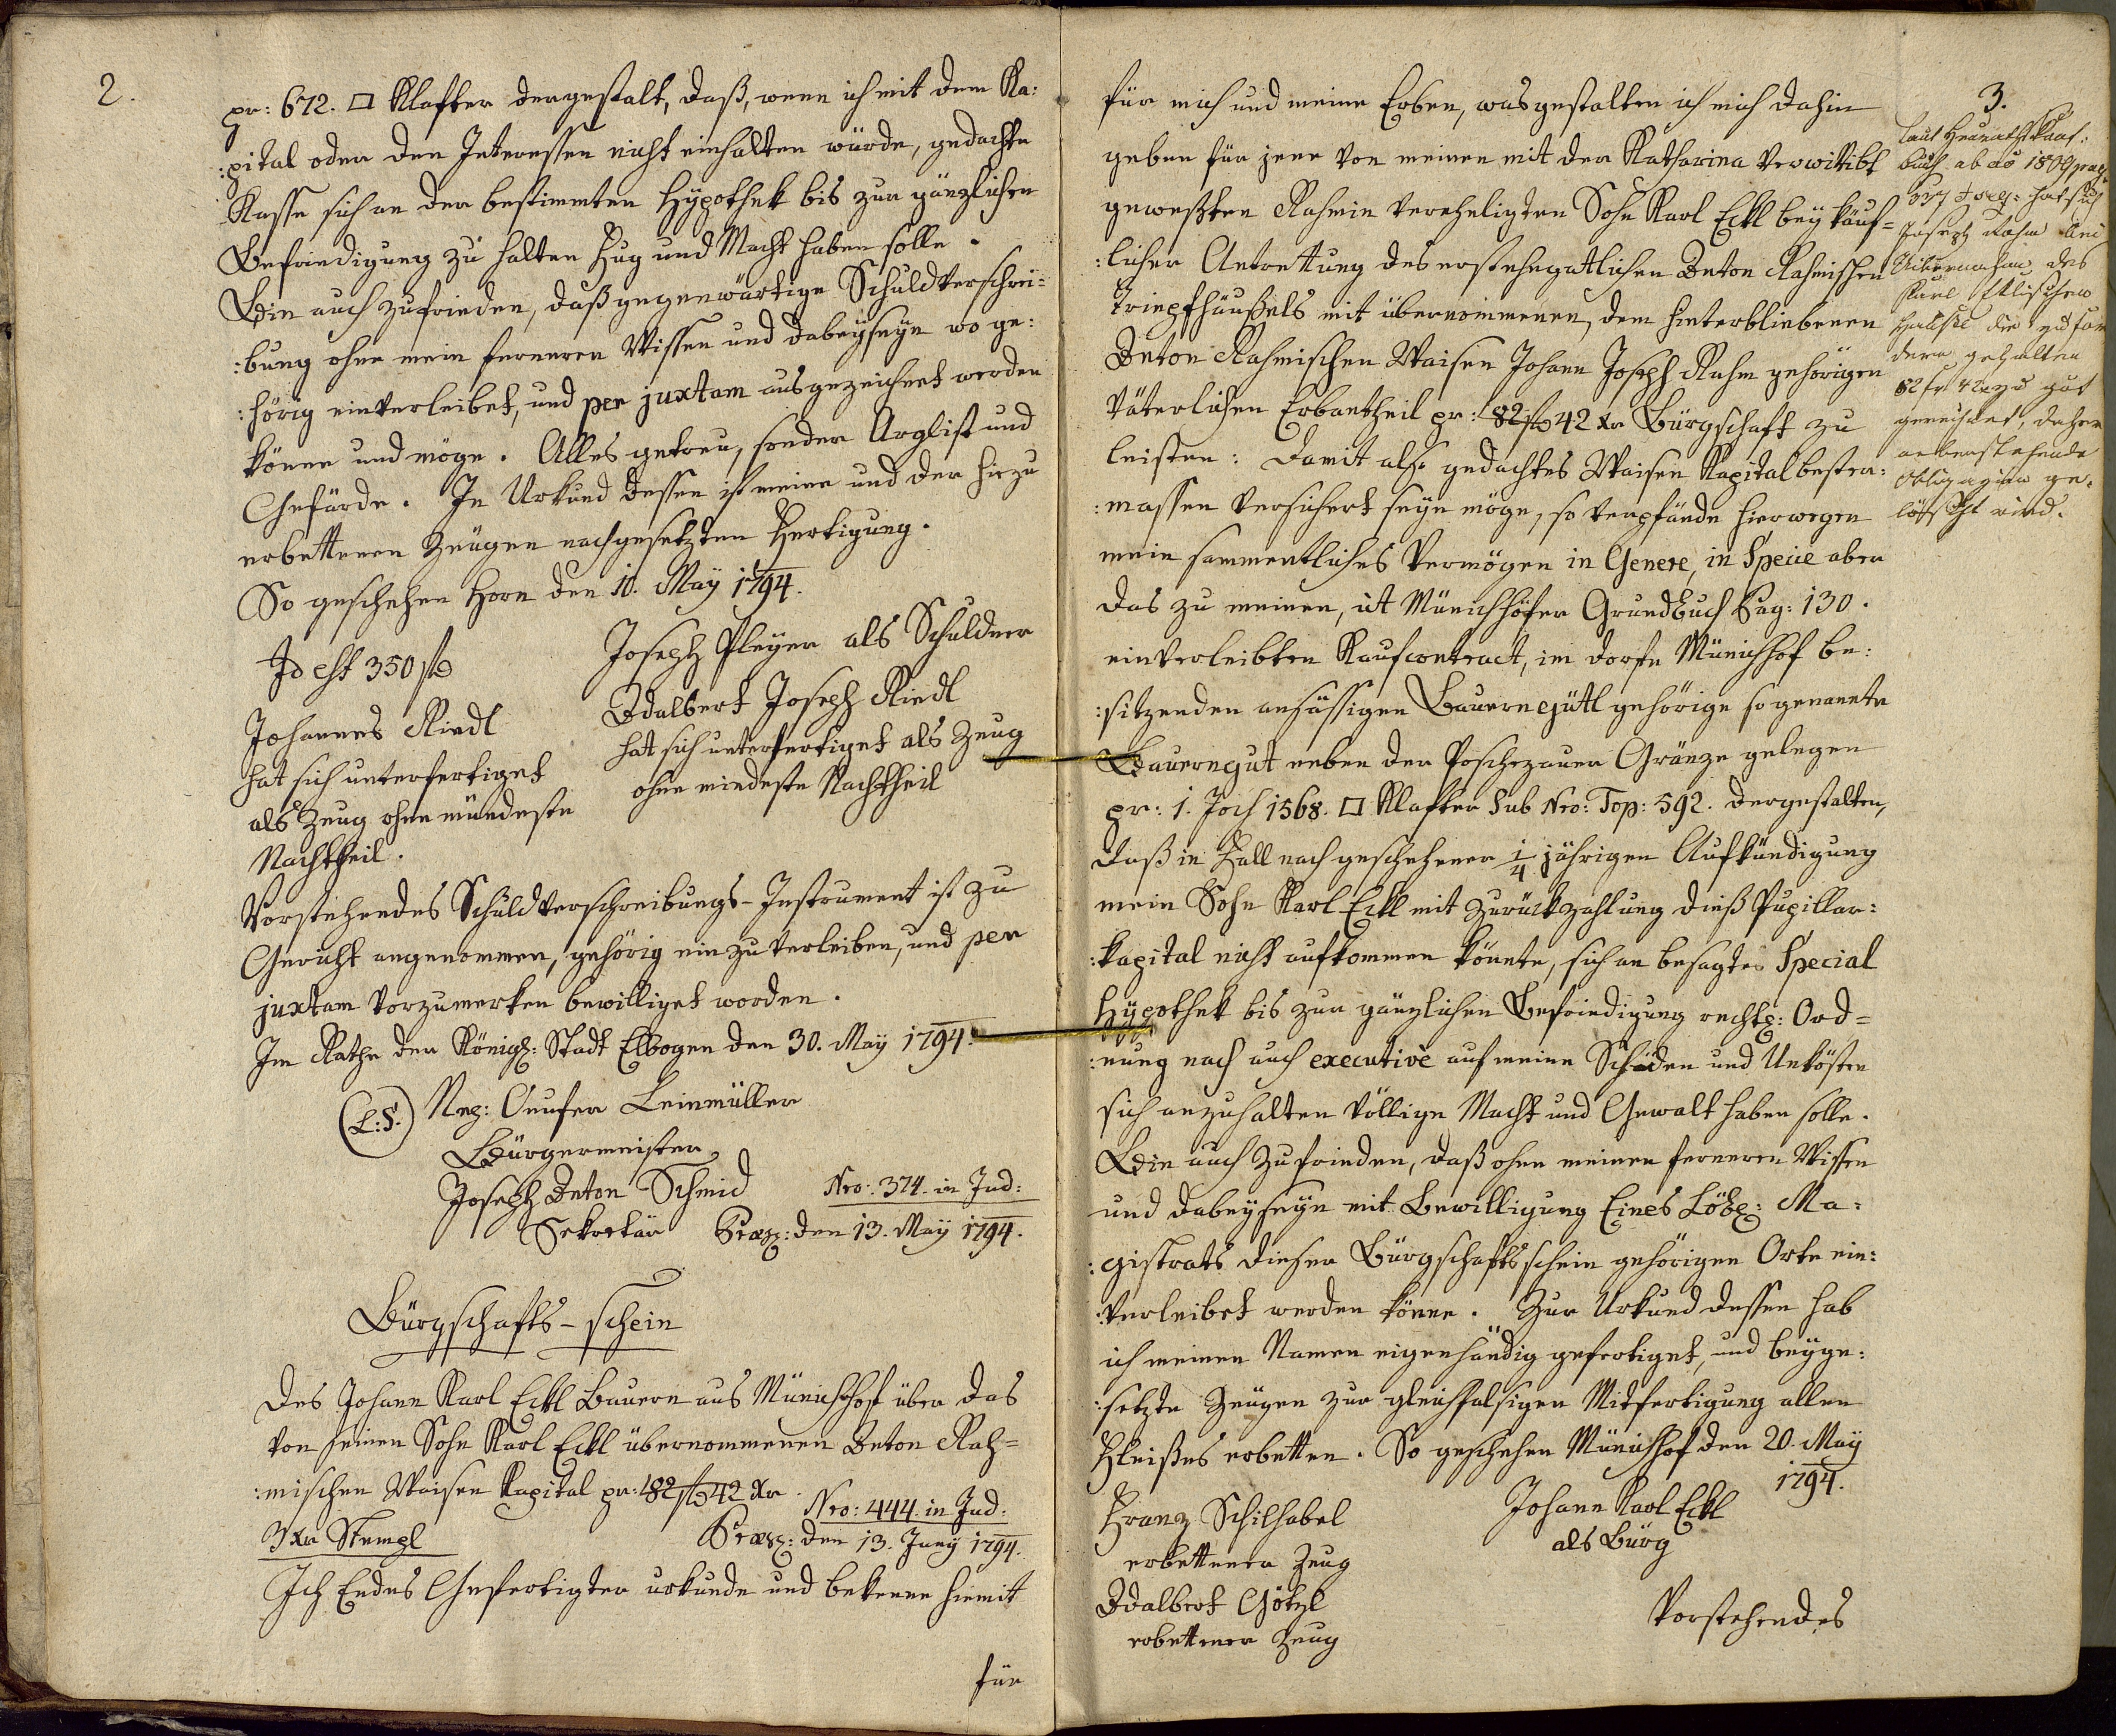 2.
pr: 672. □ Klafter dergestalt, daß, wenn ich mit dem Ka:
:pital oder den Interessen nicht einhalten würde, gedachte
Kasse sich an der bestimmten Hÿpothek bis zur gänzlichen
Befriedigung zu halten Fug und Macht haben solle.
Bin auch zufrieden, daß gegenwärtige Schuldverschrei:
:bung ohne mein ferneren Wissen und dabeÿseÿn wo ge:
:hörig einverleibet, und per juxtam ausgezeichnet werden
könne und möge. Alles getreu, sonder Arglist und
Gefärde. In Urkund dessen ist meine und der hiezu
erbettenen Zeugen nachgesetzten Fertigung.
So geschehen Horn den 10. Maÿ 1794.
Id est 350 f
Joseph Pleÿer als Schuldner
Johannes Riedl
hat sich unterfertiget
als Zeug ohne mündeste
Nachtheil.
Adalbert Joseph Riedl
hat sich unterfertiget als Zeug
ohne mindeste Nachtheil
Vorstehendes Schuldverschreibungs-Instrument ist zu
Gericht angenommen, gehörig einzuverleiben, und per
juxtam vorzumerken bewilliget worden.
Im Rathe der Königl: Stadt Elbogen den 30. Maÿ 1794.
(L:S.) Leinmüller
Bürgermeister
Joseph Anton Schmid
Sekretär
Nro: 374. in Jud:
Præs: den 13. Maÿ 1794.
Bürgschafts-schein
Des Johann Karl Eckl Bauern aus Münichhof über das
von seinen Sohn Karl Eckl übernommenen Anton Rah=
:mischen Waisen Kapital pr: 82 f 42 Xr.
3 Xr Stempl
Nro: 444. in Jud:
Præs: den 13. Junÿ 1794.
Ich Endes Gefertigter urkunde und bekenne hiemit
für
3.
für mich und meine Erben, was gestalten ich mich dahin
geben für jene von meinen mit der Katharina Verwittibt
geweßten Rahmin verehligten Sohn Karl Eckl beÿ käuf=
:licher Antrettung des erstehegattlichen Anton Rahmischen
Tripfhäußels mit übernommenen, dem hinterbliebenen
Anton Rahmischen Waisen Johann Joseph Rahm gehörigen
Väterlichen Erbantheil pr: 82 f 42 Xr Bürgschaft zu
leisten: Damit also gedachtes Waisen Kapital bester:
:massen versichert seÿn möge, so verpfände hierwegen
mein sammentliches Vermögen in Genere, in Specie aber
das zu meinen, ut Münichhöfer Grundbuch Pag: 130.
einverleibten Kaufcontract, im dorfe Münichhof be:
:sitzenden ansässigen Bauerngütl gehörige so genannte
Bauerngut neben der Poschezauer Gränze gelegen
pr: 1. Joch 1568. □ Klafter Sub Nro: Top: 592. dergestalten,
daß in Fall nach geschehener 1/4 jährigen Aufkündigung
mein Sohn Karl Eckl mit Zurückzahlung dieß Pupillar:
:kapital nicht aufkommen könnte, sich an besagter Special
Hÿpothek bis zur gänzlichen Befriedigung rechtl: Ord=
:nung nach auch executivè auf meine Schäden und Unkösten
sich anzuhalten völlige Macht und Gewalt haben solle.
Bin auch Zufrieden, daß ohne meinen ferneren Wissen
und dabeÿseÿn mit Bewilligung Eines Löbl: Ma:
:gistrats dieser Bürgschaftsschein gehörigen Orte ein:
:verleibet werden könne. Zur Urkund dessen hab
ich meinen Namen eigenhändig gefertiget, und beÿge:
:setzte Zeugen zur gleichfalsigen Mitfertigung allen
Fleißes erbetten. So geschehen Münichhof den 20. Maÿ
1794.
Franz Schilhabel
erbettener Zeug
Adalbert Götzl
erbettener Zeug
Johann Karl Eckl
als Bürg
Vorstehendes
laut Heuraths Kauf:
buch ab ao 1809 pag:
337 hat sich
Joseph Rahm bei
Uibernahm des
Karl Ecklischen
Hausel die zu for
dern gehabten
82 fr 42 xr zu gut
gerechnet, daher
nebenstehende
Obligazion ge:
löscht wird.